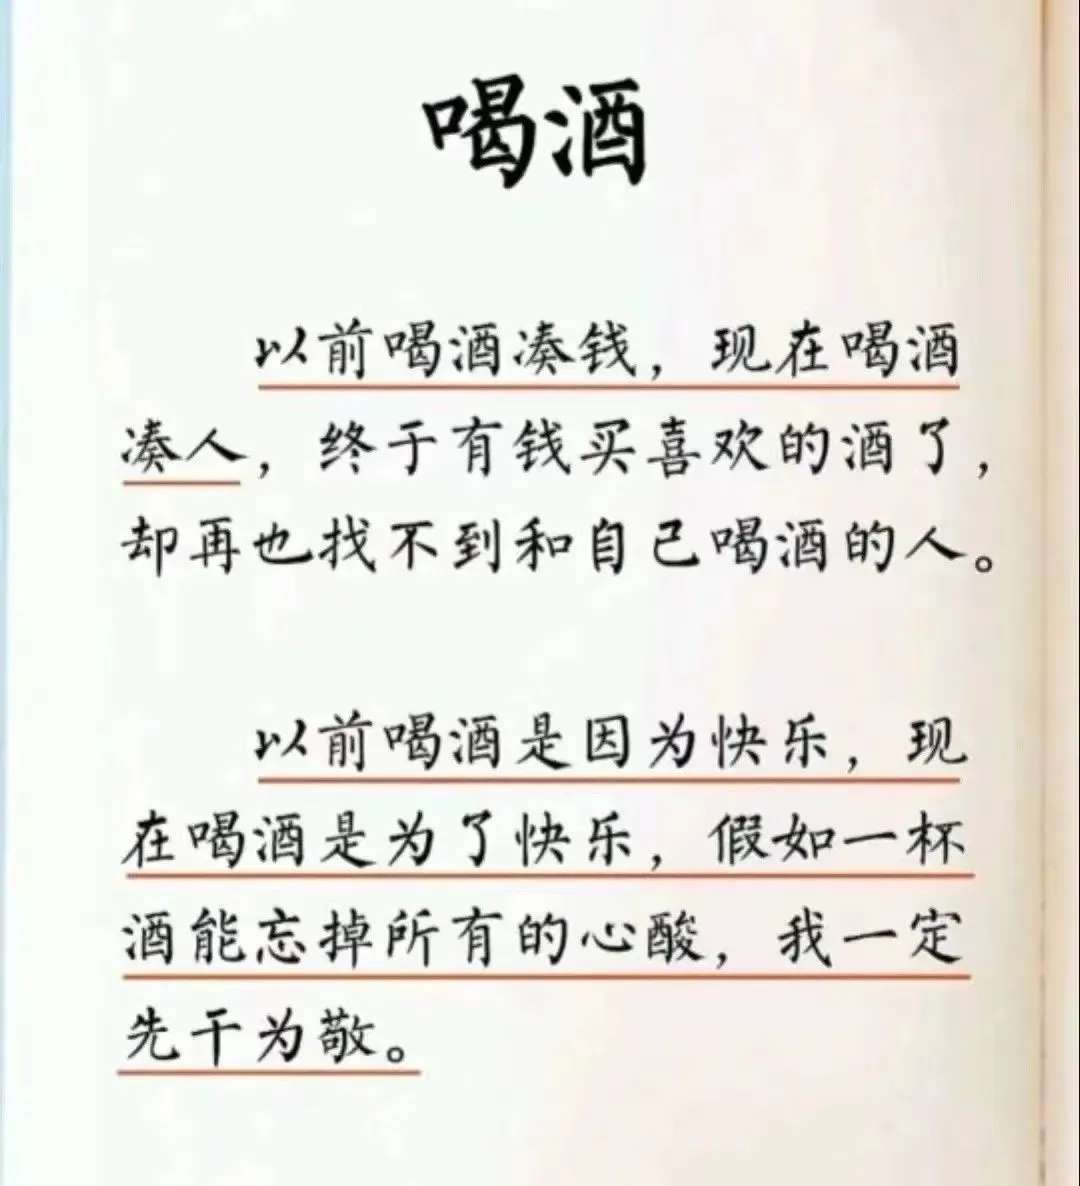 喝酒
以前喝酒凑钱，现在喝酒
凑人，终于有钱买喜欢的酒了，
却再也找不到和自己喝酒的人。
以前喝酒是因为快乐，现
在喝酒是为了快乐，假如一杯
酒能忘掉所有的心酸，我一定
先干为敬。